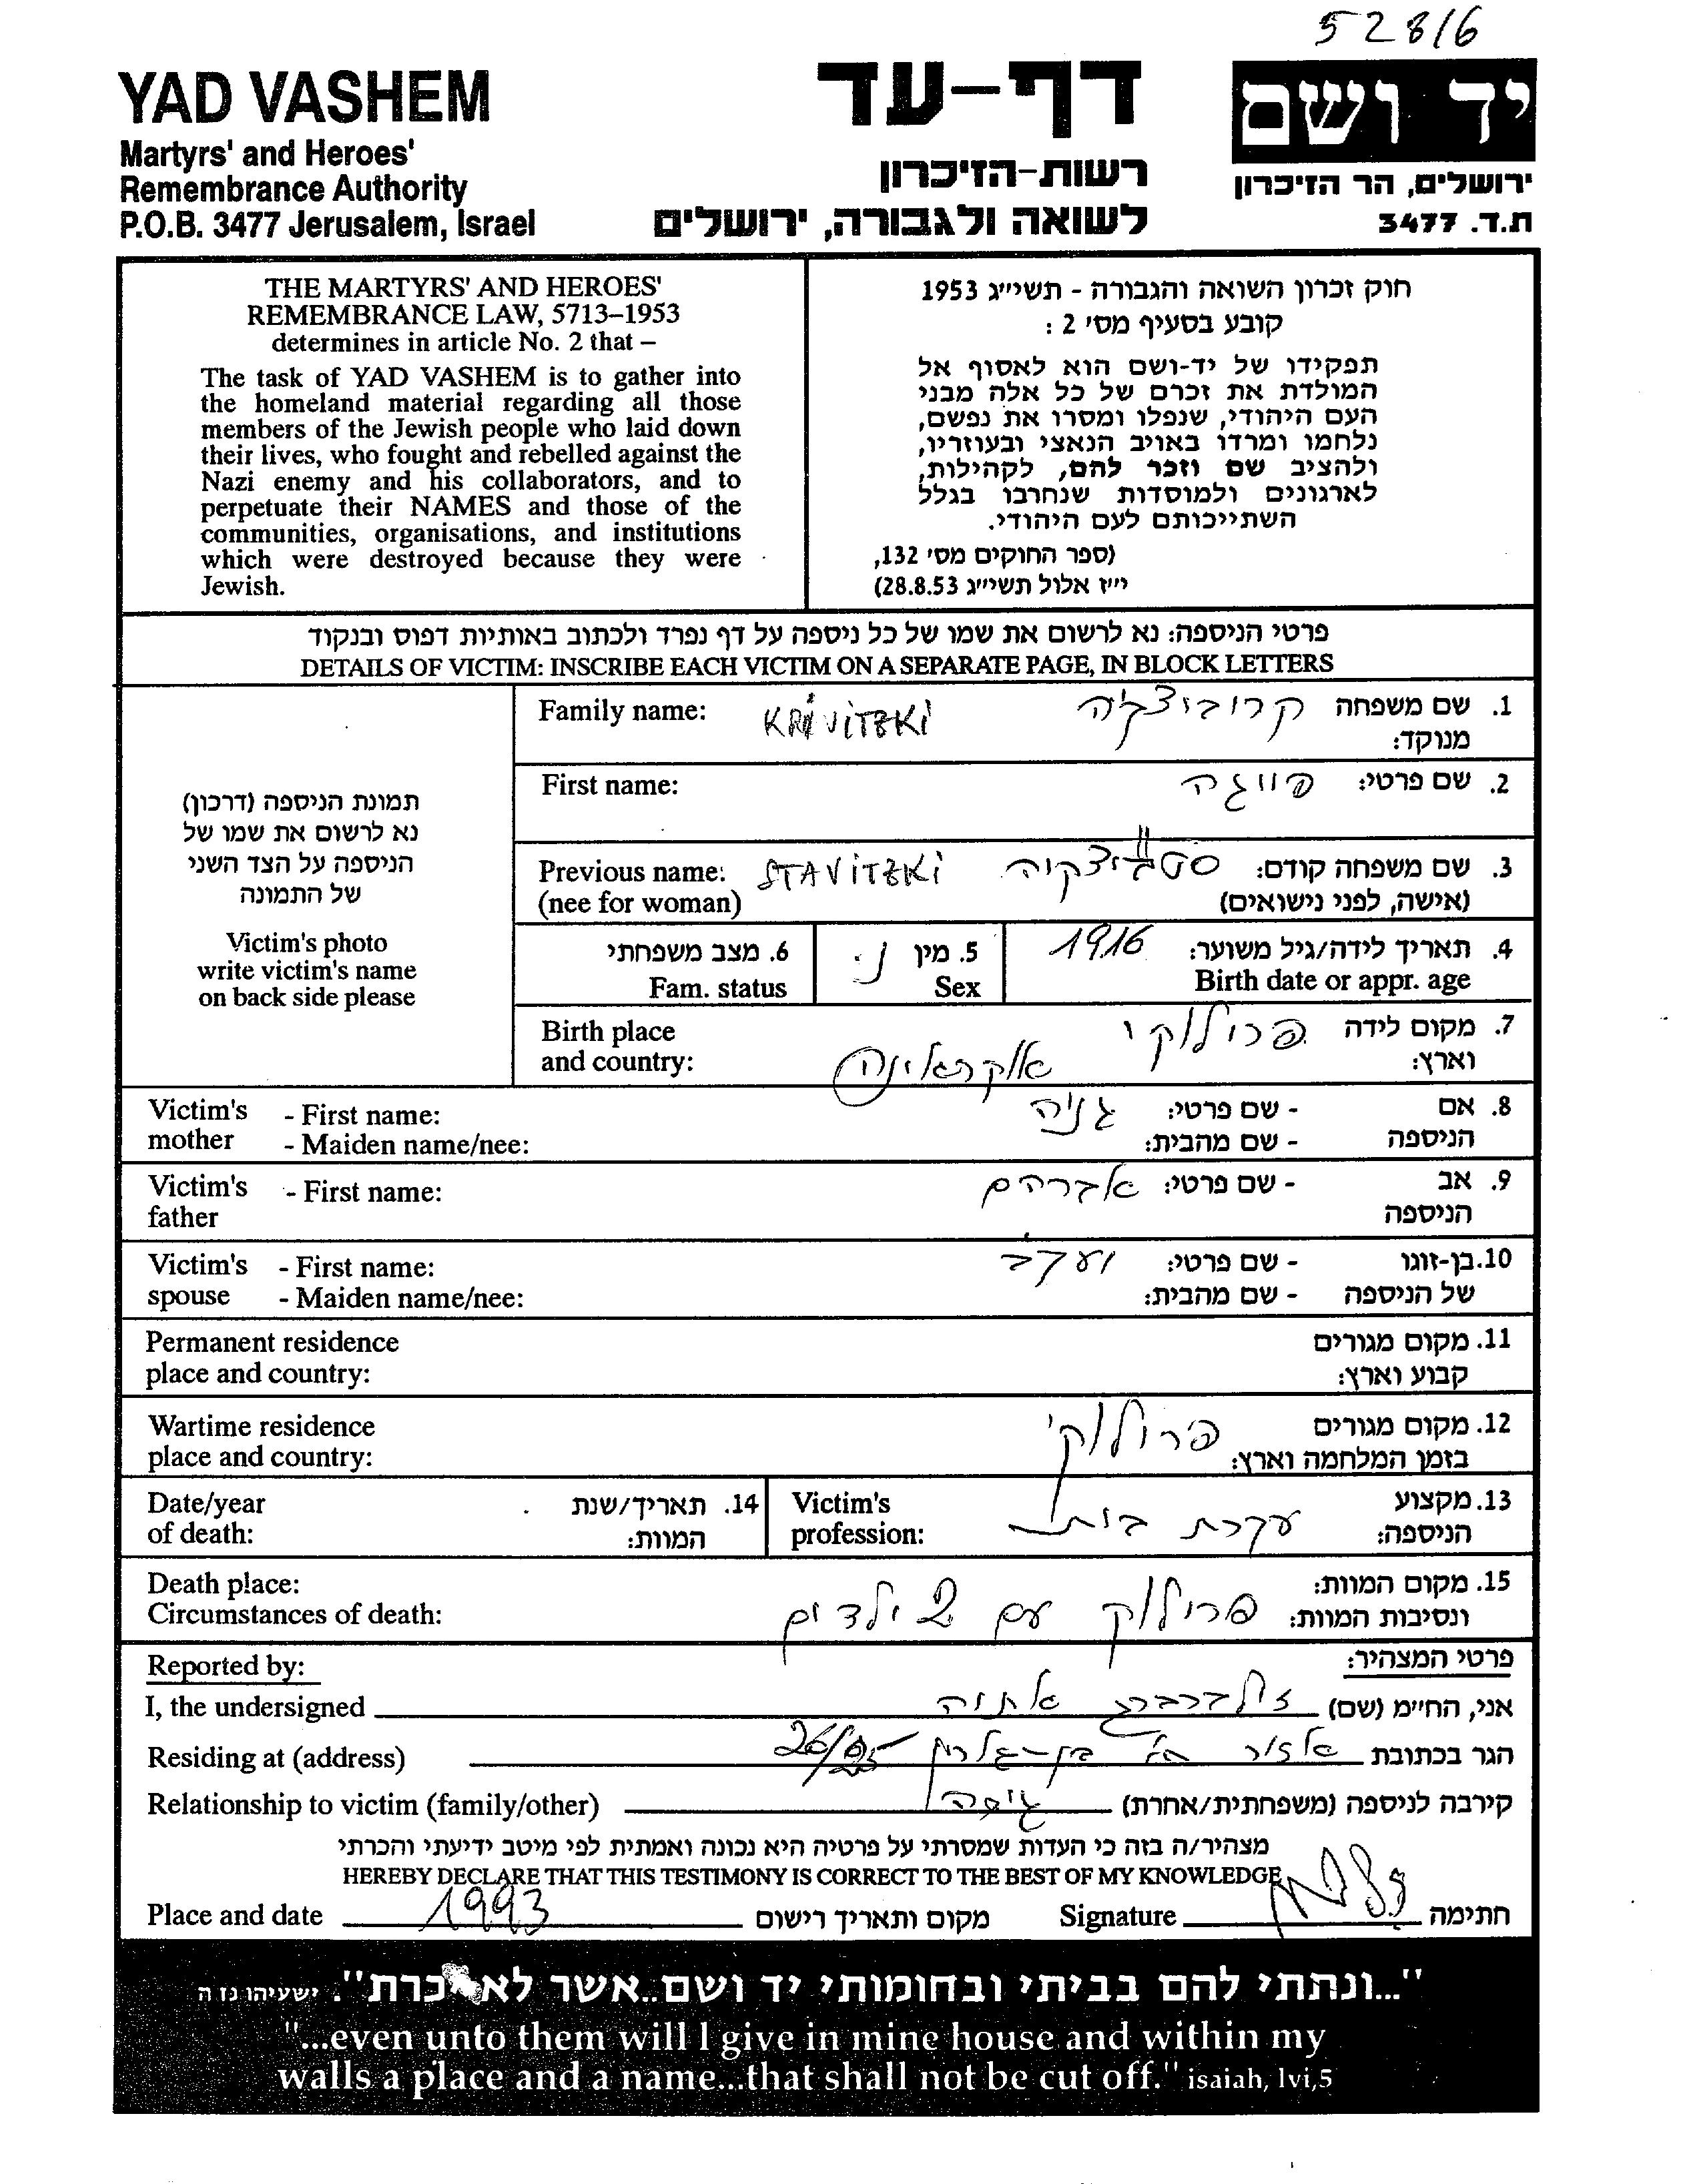 52816
YAD VASHEM
Martyrs' and Heroes'
Remembrance Authority
P.O.B. 3477 Jerusalem, Israel
דף-עד
רשות-הזיכרון
לשואה ולגבורה, ירושלים
יד ושם
ירושלים, הר הזיכרון
ת.ד. 3477
THE MARTYRS' AND HEROES'
REMEMBRANCE LAW, 5713–1953
determines in article No. 2 that –
The task of YAD VASHEM is to gather into
the homeland material regarding all those
members of the Jewish people who laid down
their lives, who fought and rebelled against the
Nazi enemy and his collaborators, and to
perpetuate their NAMES and those of the
communities, organisations, and institutions
which were destroyed because they were
Jewish.
חוק זכרון השואה והגבורה - תשי״ג 1953
קובע בסעיף מס׳ 2 :
תפקידו של יד-ושם הוא לאסוף אל
המולדת את זכרם של כל אלה מבני
העם היהודי, שנפלו ומסרו את נפשם,
נלחמו ומרדו באויב הנאצי ובעוזריו,
ולהציב שם וזכר להם, לקהילות,
לארגונים ולמוסדות שנחרבו בגלל
השתייכותם לעם היהודי.
(ספר החוקים מס׳ 132,
י״ז אלול תשי״ג 28.8.53)
פרטי הניספה: נא לרשום את שמו של כל ניספה על דף נפרד ולכתוב באותיות דפוס ובנקוד
DETAILS OF VICTIM: INSCRIBE EACH VICTIM ON A SEPARATE PAGE, IN BLOCK LETTERS
תמונת הניספה (דרכון)
נא לרשום את שמו של
הניספה על הצד השני
של התמונה
Victim's photo
write victim's name
on back side please
1. שם משפחה קרוביצקיה Family name: KRIVITZKI
מנוקד:
2. שם פרטי: פייגה First name:
3. שם משפחה קודם: Previous name: STAVITZKI
(אישה, לפני נישואים) (nee for woman)
4. תאריך לידה/גיל משוער: 1916 5. מין נ. 6. מצב משפחתי
Birth date or appr. age Sex Fam. status
7. מקום לידה פרילוקי Birth place
וארץ: אוקראינה and country:
8. אם - שם פרטי: גניה Victim's - First name:
הניספה - שם מהבית: mother - Maiden name/nee:
9. אב - שם פרטי: אברהם Victim's - First name:
הניספה father
10. בן-זוגו - שם פרטי: Victim's - First name:
של הניספה - שם מהבית: spouse - Maiden name/nee:
11. מקום מגורים Permanent residence
קבוע וארץ: place and country:
12. מקום מגורים פרילוקי Wartime residence
בזמן המלחמה וארץ: place and country:
13. מקצוע Victim's 14. תאריך/שנת Date/year
הניספה: עקרת בית profession: המוות: of death:
15. מקום המוות: Death place:
ונסיבות המוות: פרילוק עם 2 ילדים Circumstances of death:
פרטי המצהיר: Reported by:
אני, הח״מ (שם) זילברברג I, the undersigned
הגר בכתובת Residing at (address)
קירבה לניספה (משפחתית/אחרת) גיסה Relationship to victim (family/other)
מצהיר/ה בזה כי העדות שמסרתי על פרטיה היא נכונה ואמתית לפי מיטב ידיעתי והכרתי
HEREBY DECLARE THAT THIS TESTIMONY IS CORRECT TO THE BEST OF MY KNOWLEDGE
Place and date 1993 מקום ותאריך רישום Signature חתימה
"...ונתתי להם בביתי ובחומותי יד ושם..אשר לא יכרת". ישעיהו נו ה
"...even unto them will I give in mine house and within my
walls a place and a name...that shall not be cut off." isaiah, lvi,5